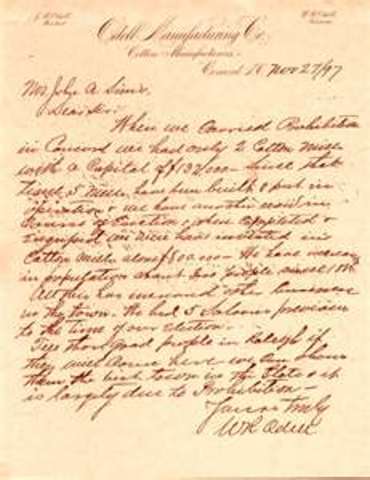 Odell Manufacturing Co.
Cotton Manufacturers
Concord, N.C. Nov 27/97
Mr John A. Sims
Dear Sir:
When we carried Prohibition
in Concord we had only 2 Cotton Mills
with a Capital of $132,000 - Since that
time 5 Mills have been built & put in
operation & we have another now in
course of erection, when completed &
equipped we will have invested in
Cotton Mills alone
in population about
All this has increased other business
in the town. We had 5 Saloons previous
to the time of our Election.
Tell those good people in Raleigh if
they will come here we can show
them the best town in the State & it
is largely due to Prohibition -
Yours Truly
W R Odell